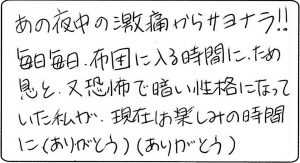 あの夜中の激痛からサヨナラ!!
毎日毎日、布団に入る時間に、ため
息と、又恐怖で暗い性格になって
いた私が、現在は楽しみの時間
に(ありがとう)(ありがとう)